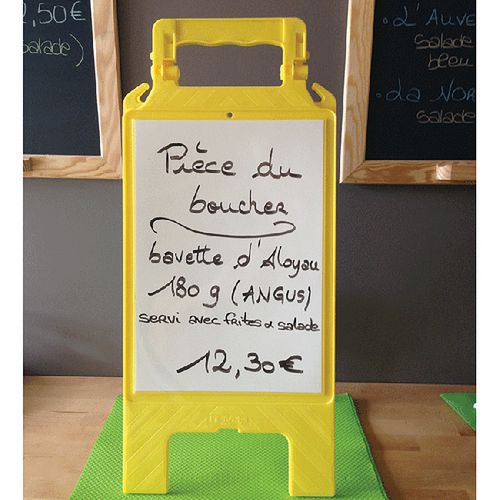 2,50€
salade)
Pièce du
boucher
bavette d'Aloyau
180 g (ANGUS)
servi avec frites & salade
12,30€
L'Auve
salade
bleu
La Nor
salade